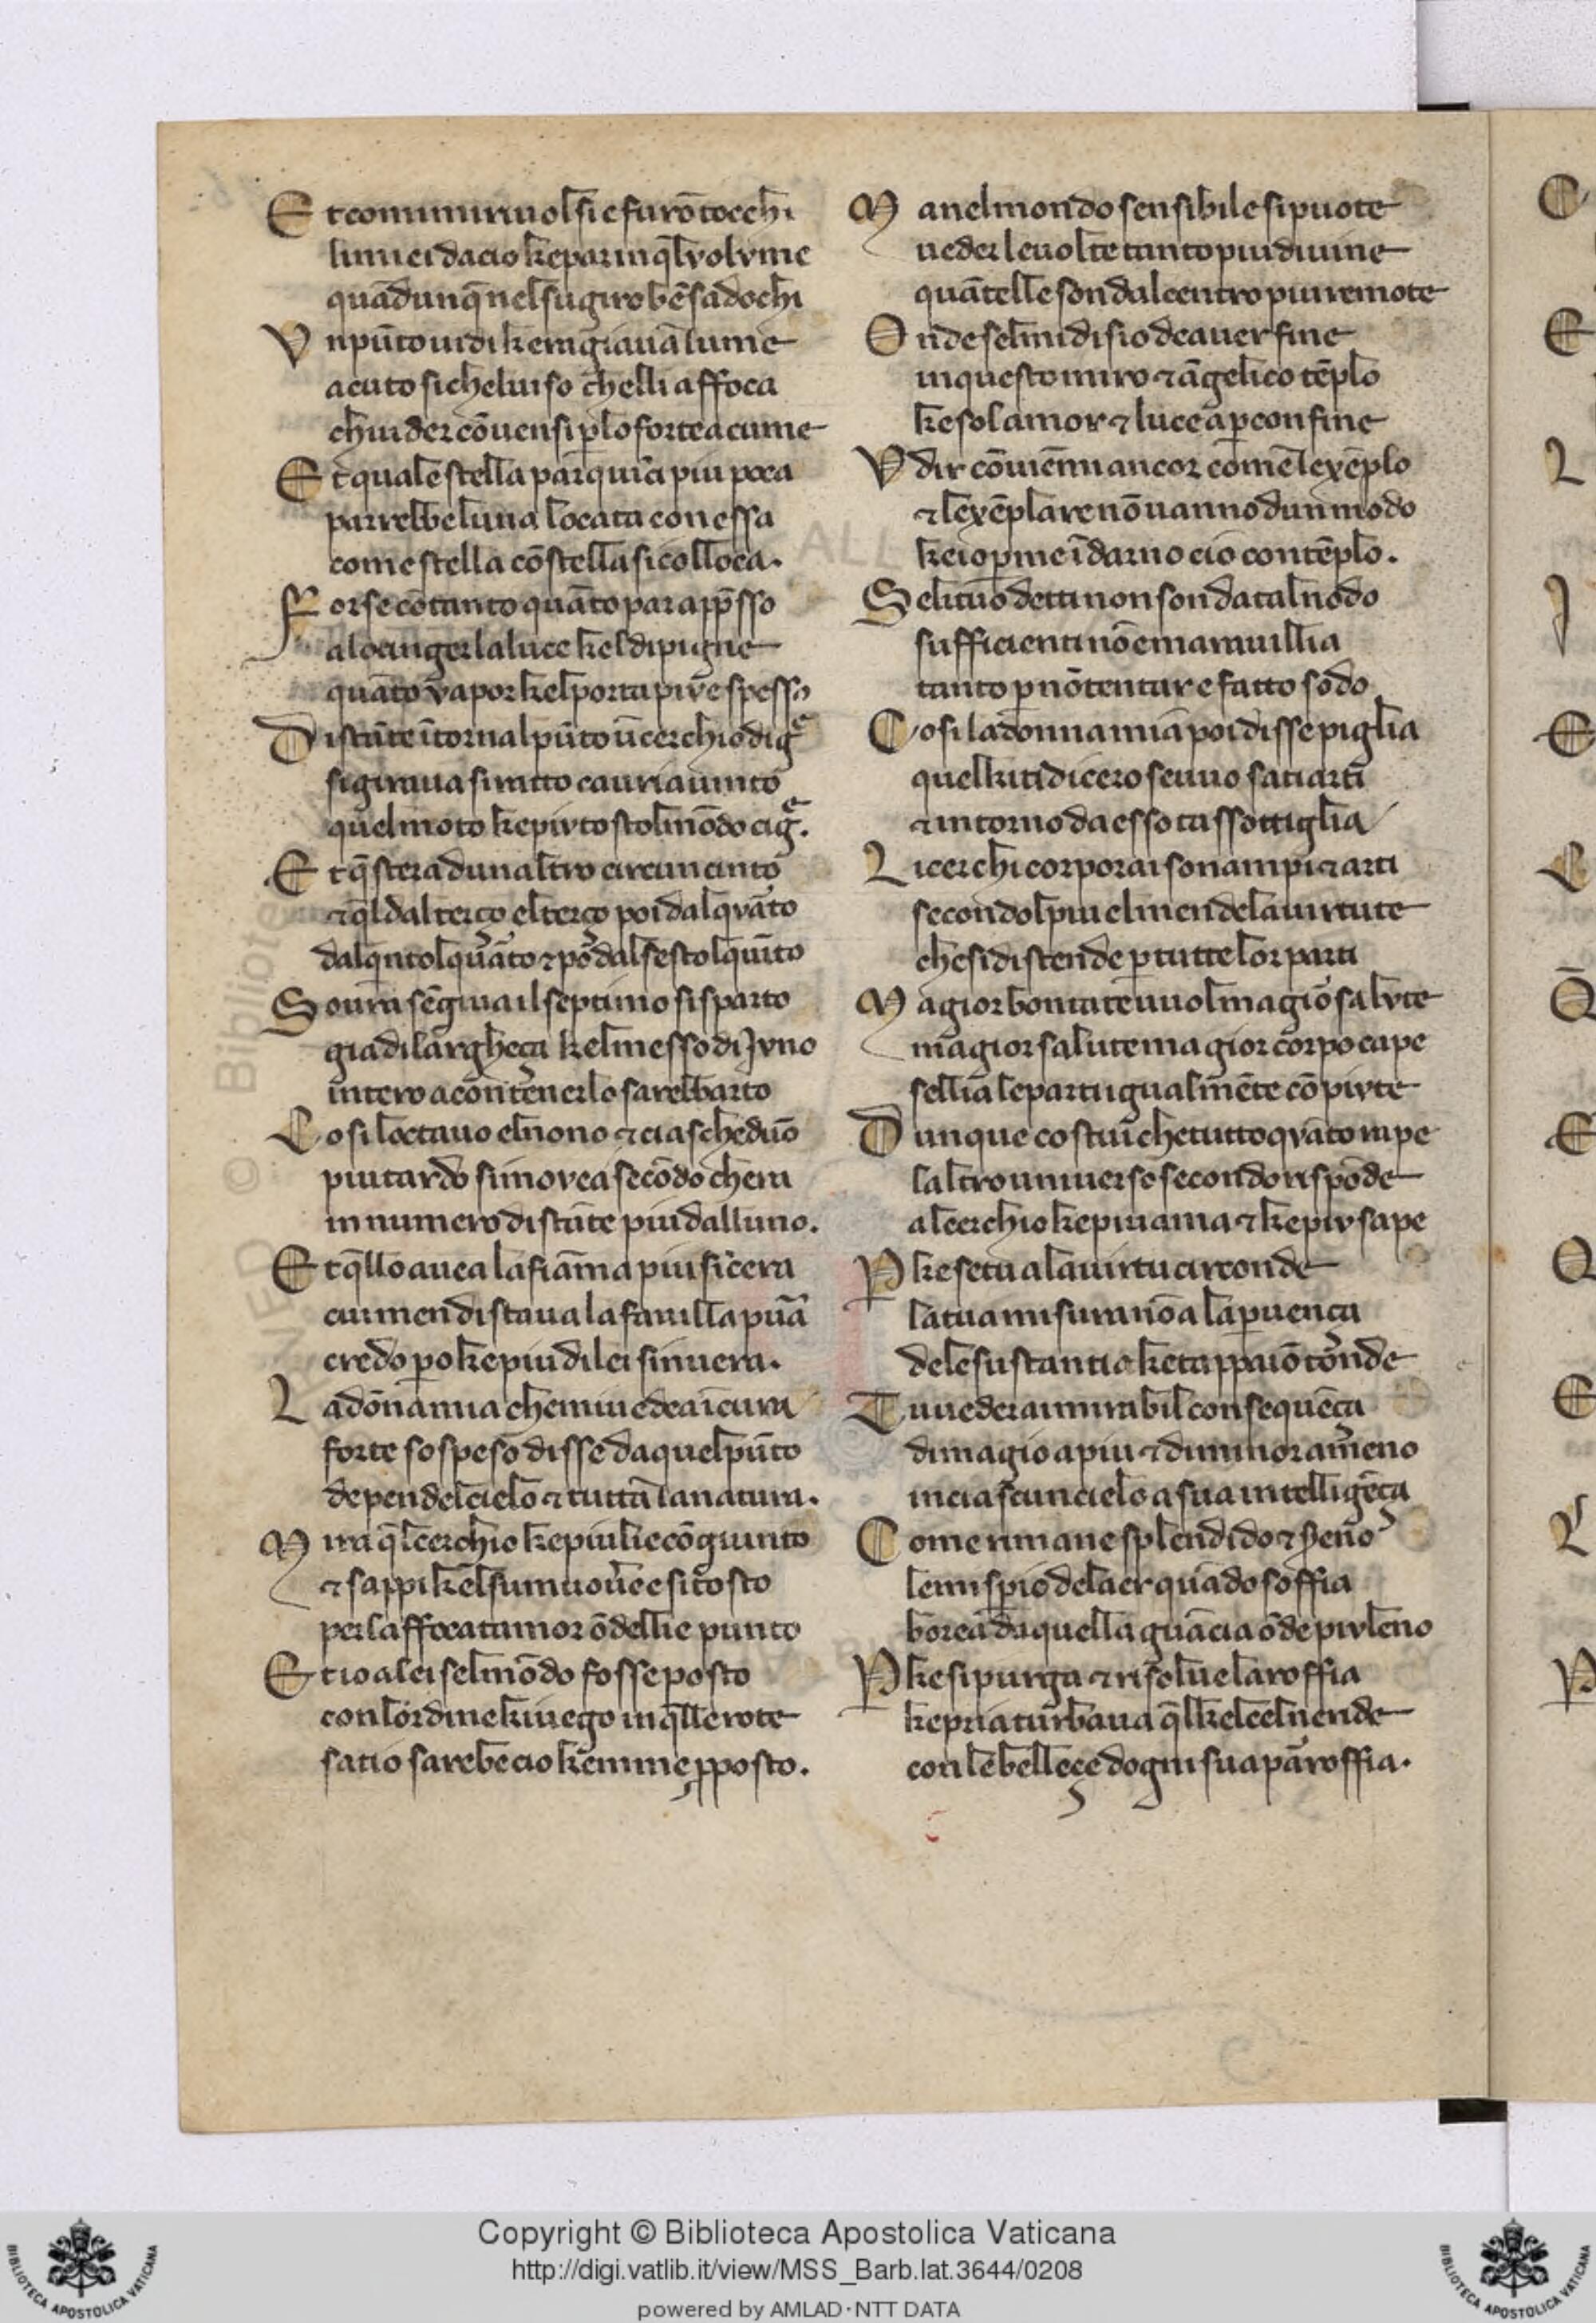 E tcommimivolsi e furō tocchi
limiei da cio ke par in q̄l volvme
quādunq̄ nel su giro bē sadochi
V n pūto uidi ke raggiavā lume
acuto si chel uiso chelli affoca
chiuder cōuensi ꝑ lo forte acume
E t quale stella par quici piu poca
parrebbe luna locata con essa
come stella cō stella si colloca.
F orse cotanto quāto par app̄sso
alo cinger la luce kel dipigne
quāto vapor kel porta piv e spesso
D istāte ītorn al pūto ū cerchio digͤ
si giraua si ratto cauria uinto
quel moto ke piv tosto l mōdo cigͤ.
E t q̄st era dun altro circuncinto
⁊ q̄l dal terço el terço poi dal qvāto
dal q̄nto l qu̇̄ato ⁊ pō dal sesto l quīto
S oura sēguia il septimo si sparto
gia di largheça kel messo di Jvno
intero a contenerlo sarebbarto
C osi loctauo el nono ⁊ ciascheduō
piu tardo si movea secōdo chera
in numero distāte piu dalluno.
E t q̄llo auea la fiāma piu sīcera
cui men distaua la fauilla pura
credo ꝑo ke piu di lei sinuera.
L a dōna mia che miuedea ī cura
forte sospeso disse da quel pūto
depende l cielo ⁊ tutta la natura.
M ira q̄l cerchio ke piu lie cōgiunto
⁊ sappi kel su muoue e si tosto
per laffocatamor ōdellie punto
E t io alei sel mōdo fosse posto
con lordine kiuego in q̄lle rote
satio sarebe cio kemme ꝓposto.
M a nel mondo sensibile si puote
ueder le uolte tanto piu diuine
quātelle son dal centro piu remote
O nde sel mi disio de aver fine
in questo miro ⁊ āgelico tēplo
ke sol amor ⁊ luce a ꝑ confine
V dir cōuiēmi ancor come l exēplo
⁊ l exēplare nō uanno dun modo
ke io ꝑ me īdarno cio contēplo.
S e li tuo detti non son da tal nodo
sufficienti nō e marauillia
tanto ꝑ nō tentar e fatto sodo
C osi la donna mia poi disse piglia
quel kiti dicero se uuo satiarti
⁊ intorno da esso tassottiglia
L i cerchi corporai son ampi ⁊ arti
secondo l piu el men de la uirtute
che si distende ꝑ tutte lor parti
M agior bontate uuol magiō salvte
magior salute magior corpo cape
selli a le parti igualmēte cōpivte
D unque costui che tutto qvāto rape
laltro uniuerso secondo rispōde
al cerchio ke piu ama ⁊ ke piv sape
P ke se tu a la uirtu circonde
la tua misura nō a la ꝑuenca
de le sustantie ke tappaiō tōnde
T u uederai mirabil consequēça
di magio a piu ⁊ di minor a meno
in ciascun cielo a sua intelligēça
C ome rimane splendido ⁊ sꝛeno
lemisꝑio de laer quādo soffia
borea da quella guācia ōde piv leno
P ke si purga ⁊ risolue la roffia
ke pria turbaua q̄l kel cel nende
con le belleçe dogni sua pāroffia.
Copyright © Biblioteca Apostolica Vaticana
http://digi.vatlib.it/view/MSS_Barb.lat.3644/0208
powered by AMLAD·NTT DATA
BIBLIOTECA APOSTOLICA VATICANA
BIBLIOTECA APOSTOLICA VATICANA